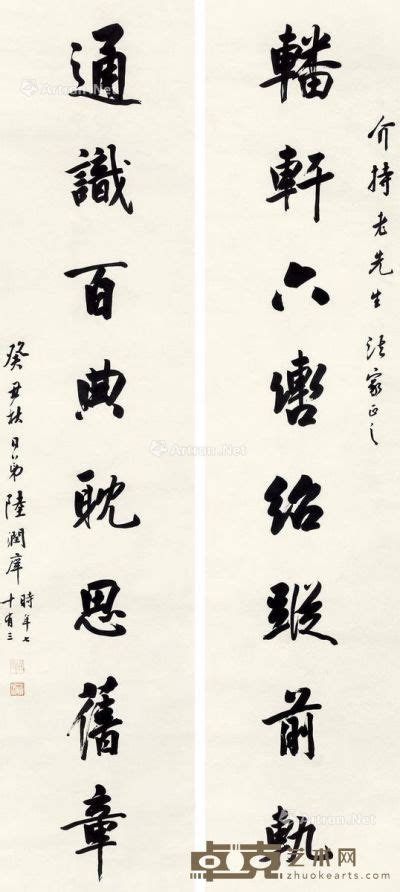 介持老先生 法家正之
轓軒六轡紹蹤前軌
通識百典耽思舊章
癸丑秋日弟陸潤庠
時年七
十有三
Artron.Net
Artron.Net
Artron.Net
Artron.Net
Artron.Net
卓克艺术网
zhuokearts.com